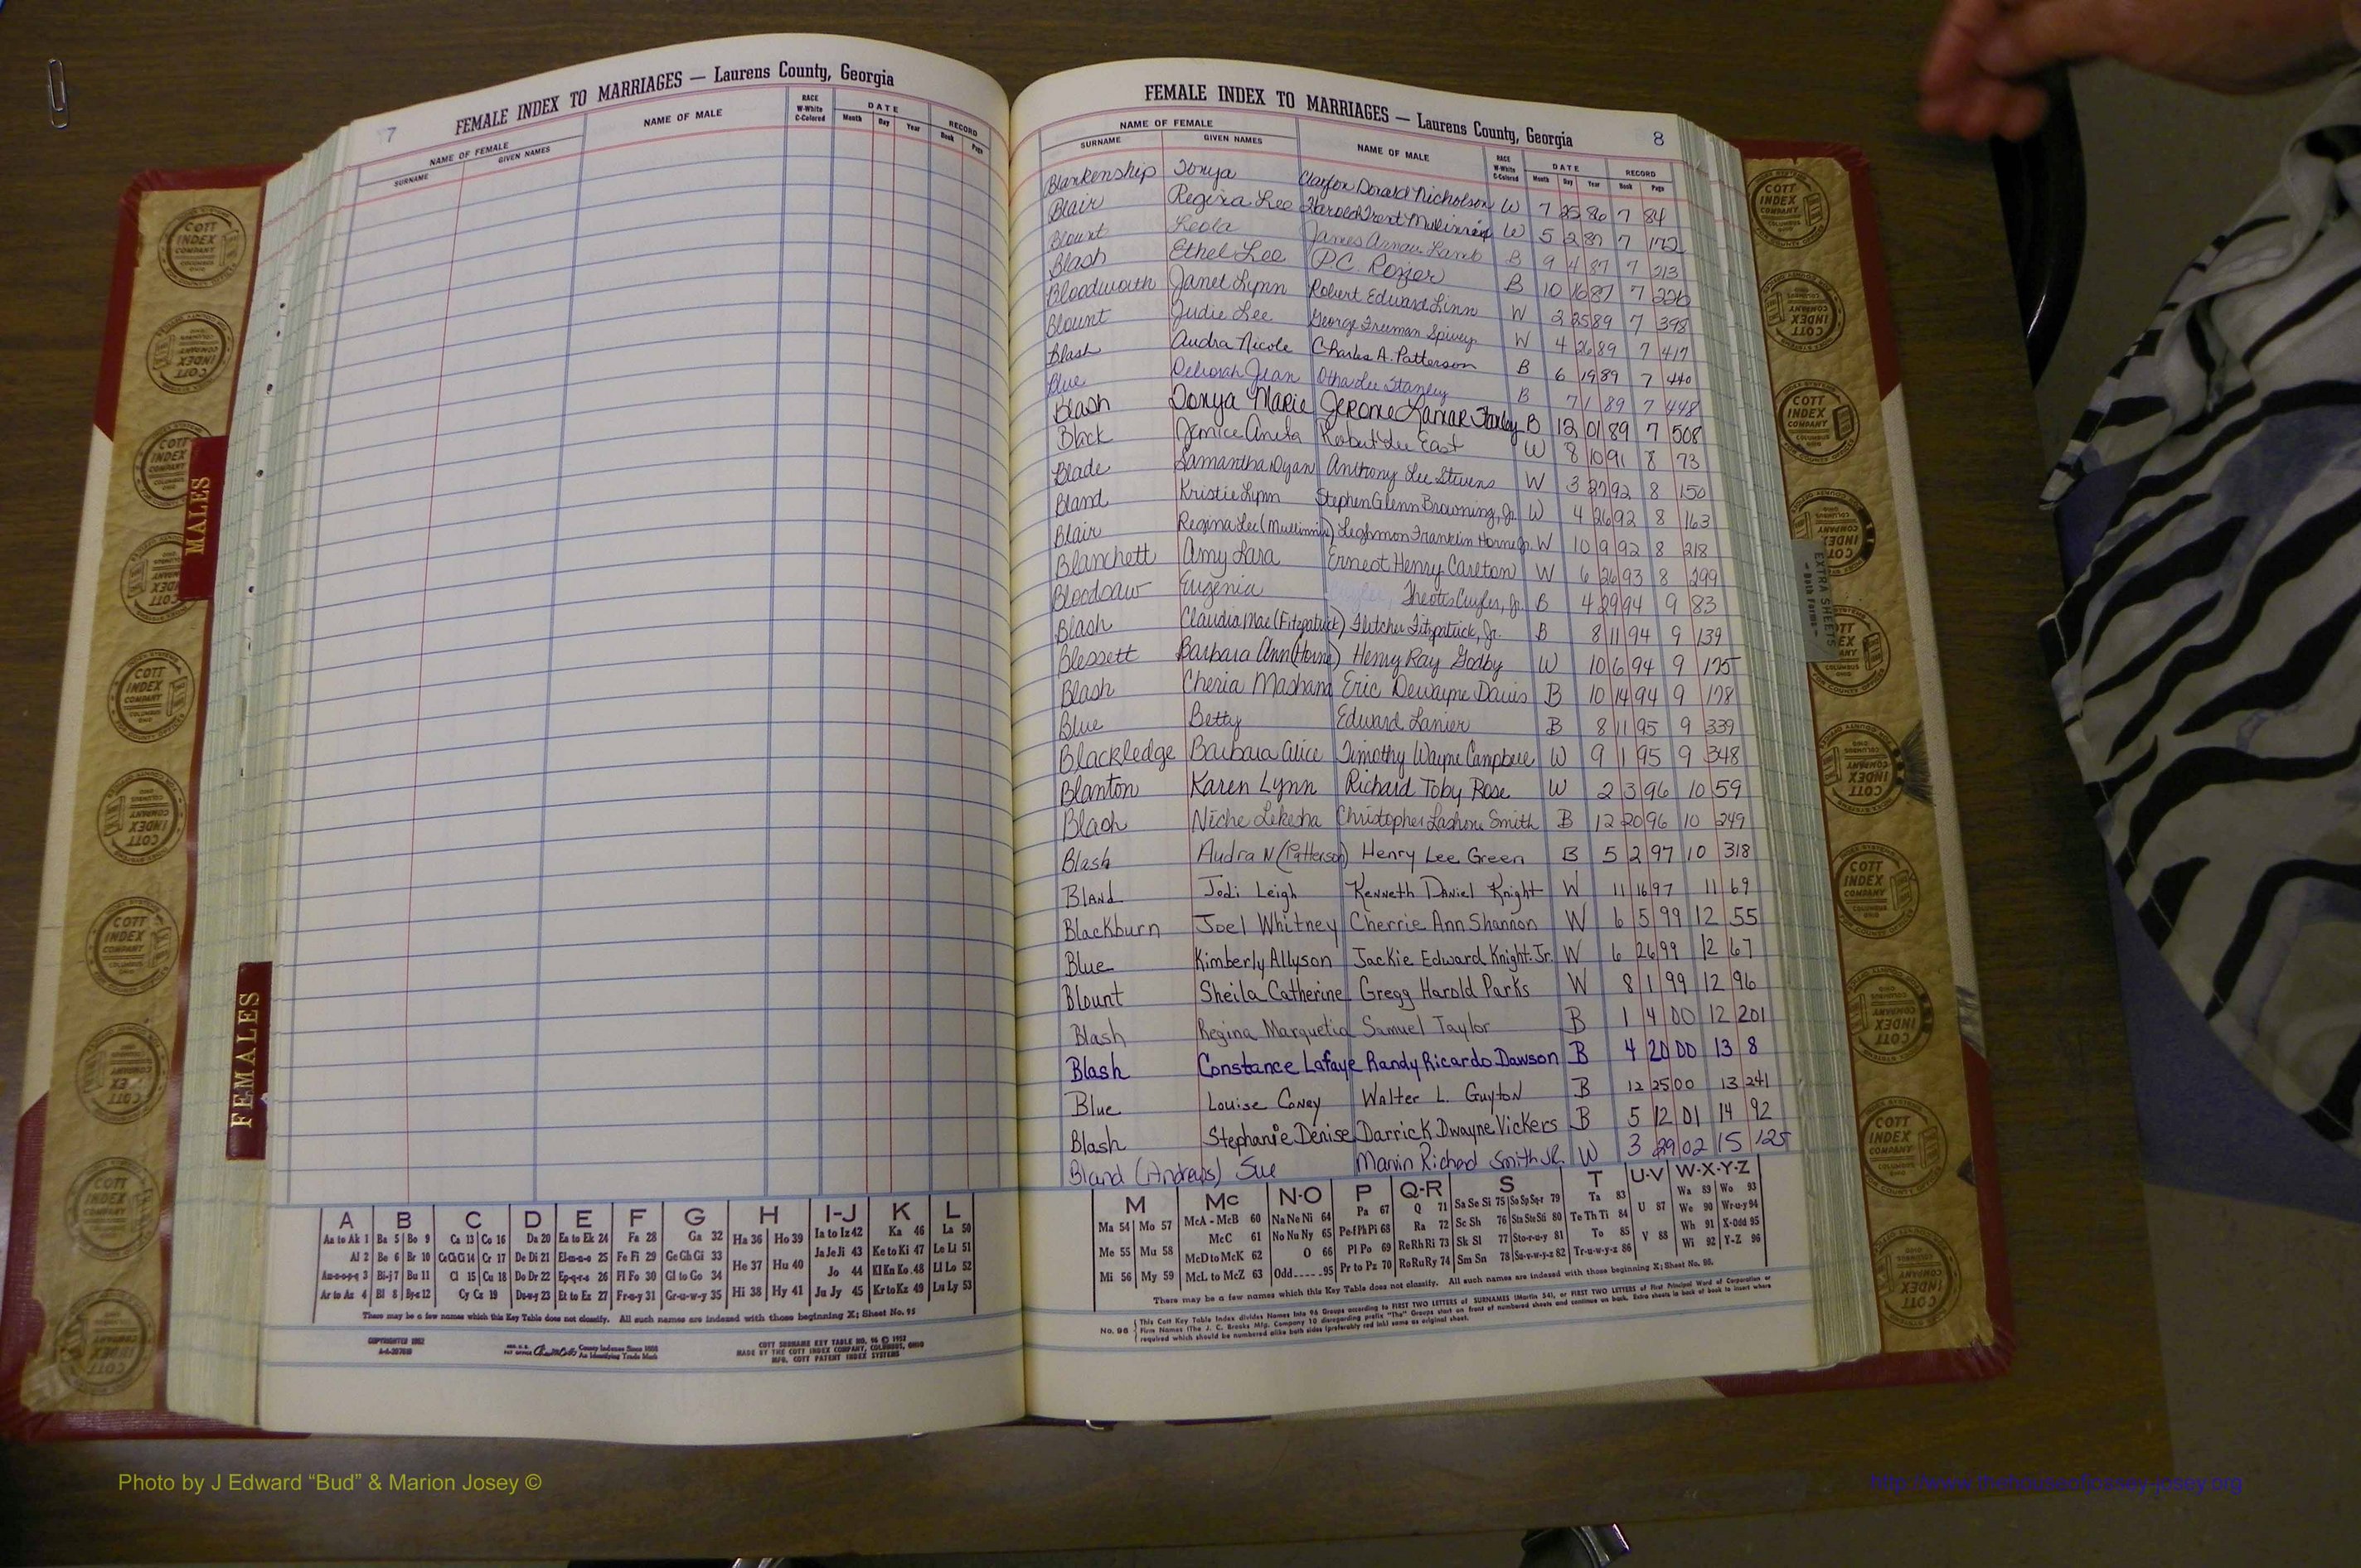 7 FEMALE INDEX TO MARRIAGES — Laurens County, Georgia
NAME OF FEMALE NAME OF MALE RACE W-White C-Colored DATE RECORD
SURNAME GIVEN NAMES Month Day Year Book Page
MALES
FEMALES
A B C D E F G H I-J K L
Aa to Ak 1 Ba 5 Bo 9 Ca 13 Co 16 Da 20 Ea to Ek 24 Fa 28 Ga 32 Ha 36 Ho 39 Ia to Iz 42 Ka 46 La 50
Al 2 Be 6 Br 10 Ce Ch Ci 14 Cr 17 De Di 21 El-m-n-o 25 Fe Fi 29 Ge Gh Gi 33 He 37 Hu 40 Ja Je Ji 43 Ke to Ki 47 Le Li 51
Am-n-o-p-q 3 Bi-j 7 Bu 11 Cl 15 Cu 18 Do Dr 22 Ep-q-r-s 26 Fl Fo 30 Gl to Go 34 Hi 38 Hy 41 Jo 44 Kl Kn Ko 48 Ll Lo 52
Ar to Az 4 Bl 8 By-z 12 Cy Cz 19 Du-w-y 23 Et to Ez 27 Fr-u-y 31 Gr-u-w-y 35 Ju Jy 45 Kr to Kz 49 Lu Ly 53
There may be a few names which this Key Table does not classify. All such names are indexed with those beginning X; Sheet No. 95
COTT SURNAME KEY TABLE NO. 96 © 1952
MADE BY THE COTT INDEX COMPANY, COLUMBUS, OHIO
MFG. COTT PATENT INDEX SYSTEMS
FEMALE INDEX TO MARRIAGES — Laurens County, Georgia 8
NAME OF FEMALE NAME OF MALE RACE W-White C-Colored DATE RECORD
SURNAME GIVEN NAMES Month Day Year Book Page
Blankenship Tonya Clayton Donald Nicholson W 7 25 86 7 84
Blair Regina Lee Harold Trent Mullinnix W 5 2 87 7 172
Blount Leola James Lamb B 9 4 87 7 213
Blash Ethel Lee P.C. Rozier B 10 16 87 7 226
Bloodworth Janet Lynn Robert Edward Linn W 2 25 89 7 398
Blount Judie Lee George Freeman Spivey W 4 26 89 7 417
Blash Audra Nicole Charles A. Patterson B 6 19 89 7 440
Blue Deborah Jean Otha Lee Stanley B 7 1 89 7 448
Blash Donya Marie Jerome Lamar B 12 01 89 7 508
Black Jenice Anita Robert Lee East W 8 10 91 8 73
Blade Samantha Dyan Anthony Lee Stevens W 3 27 92 8 150
Bland Kristie Lynn Stephen Glenn Browning, Jr. W 4 26 92 8 163
Blair Regina Lee (Mullinnix) Leighmon Franklin Horne Jr. W 10 9 92 8 218
Blanchett Amy Lara Ernest Henry Carlton W 6 26 93 8 299
Bloodsaw Eugenia Theotis Cuyler, Jr. B 4 29 94 9 83
Blash Claudia Mae (Fitzpatrick) Fletcher Fitzpatrick, Jr. B 8 11 94 9 139
Blessett Barbara Ann (Horne) Henry Ray Godby W 10 6 94 9 175
Blash Cheria Mashana Eric Dewayne Davis B 10 14 94 9 178
Blue Betty Edward Lanier B 8 11 95 9 339
Blackledge Barbara Alice Timothy Wayne Campbell W 9 1 95 9 348
Blanton Karen Lynn Richard Toby Rose W 2 3 96 10 59
Blash Niche Lekesha Christopher Lashone Smith B 12 20 96 10 249
Blash Audra N (Patterson) Henry Lee Green B 5 2 97 10 318
Bland Jodi Leigh Kenneth Daniel Knight W 11 16 97 11 69
Blackburn Joel Whitney Cherrie Ann Shannon W 6 5 99 12 55
Blue Kimberly Allyson Jackie Edward Knight Jr. W 6 26 99 12 67
Blount Sheila Catherine Gregg Harold Parks W 8 1 99 12 96
Blash Regina Marquetia Samuel Taylor B 1 4 00 12 201
Blash Constance Lafaye Randy Ricardo Dawson B 4 20 00 13 8
Blue Louise Coney Walter L. Guyton B 12 25 00 13 241
Blash Stephanie Denise Darrick Dwayne Vickers B 5 12 01 14 92
Bland (Andrews) Sue Marvin Richard Smith Jr. W 3 29 02 15 125
M Mc N-O P Q-R S T U-V W-X-Y-Z
Ma 54 Mo 57 McA - McB 60 Na Ne Ni 64 Pa 67 Q 71 Sa Se Si 75 So Sp Sq-r 79 Ta 83 U 87 Wa 89 Wo 93
Me 55 Mu 58 McC 61 No Nu Ny 65 Pe-f Ph Pi 68 Ra 72 Sc Sh 76 Sta Ste Sti 80 Te Th Ti 84 V 88 We 90 Wr-u-y 94
Mi 56 My 59 McD to McK 62 O 66 Pl Po 69 Re Rh Ri 73 Sk Sl 77 Sto-r-u-y 81 To 85 Wh 91 X-Odd 95
McL to McZ 63 Odd-----95 Pr to Pz 70 Ro Ru Ry 74 Sm Sn 78 Su-v-w-y-z 82 Tr-u-w-y-z 86 Wi 92 Y-Z 96
There may be a few names which this Key Table does not classify. All such names are indexed with those beginning X; Sheet No. 95.
No. 96 This Cott Key Table Index divides Names into 96 Groups according to FIRST TWO LETTERS of SURNAMES (Martin 54), or FIRST TWO LETTERS of First Principal Word of Corporation or
Firm Names (The J. C. Brooks Mfg. Company 10 disregarding prefix "The" Groups start on front of numbered sheets and continue on back. Extra sheets in back of book to insert where
required which should be numbered alike both sides (preferably red ink) same as original sheet.
EXTRA SHEETS
COTT INDEX COMPANY COLUMBUS OHIO
Photo by J Edward “Bud” & Marion Josey ©
http://www.thehouseofjossey-josey.org